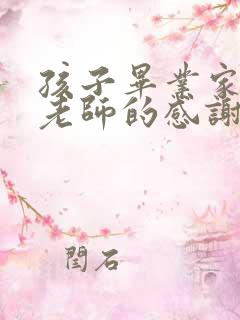 孩子畢業家
老師的感謝
閆石